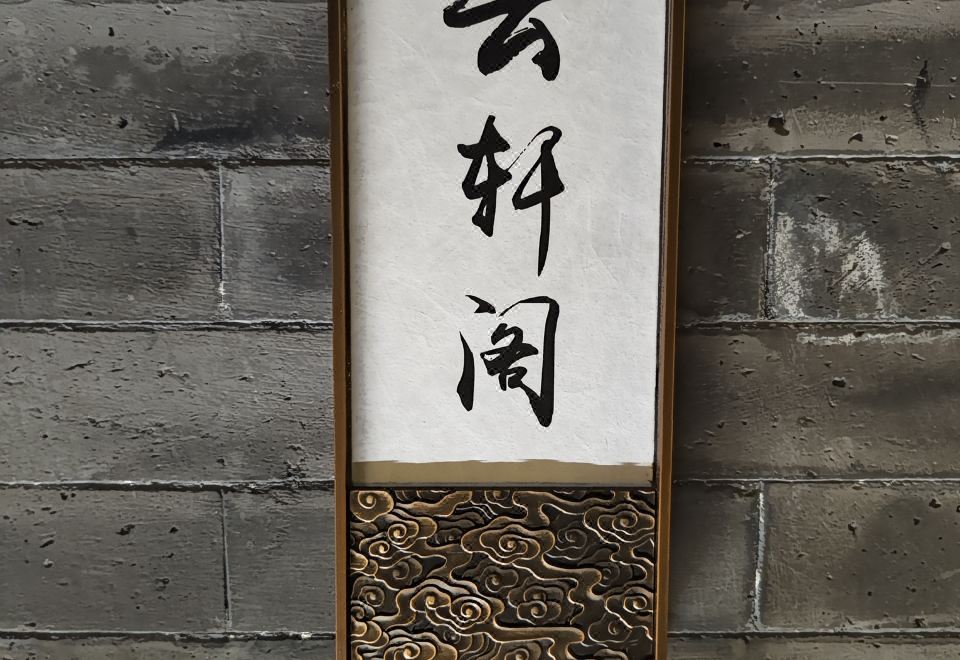 云轩阁